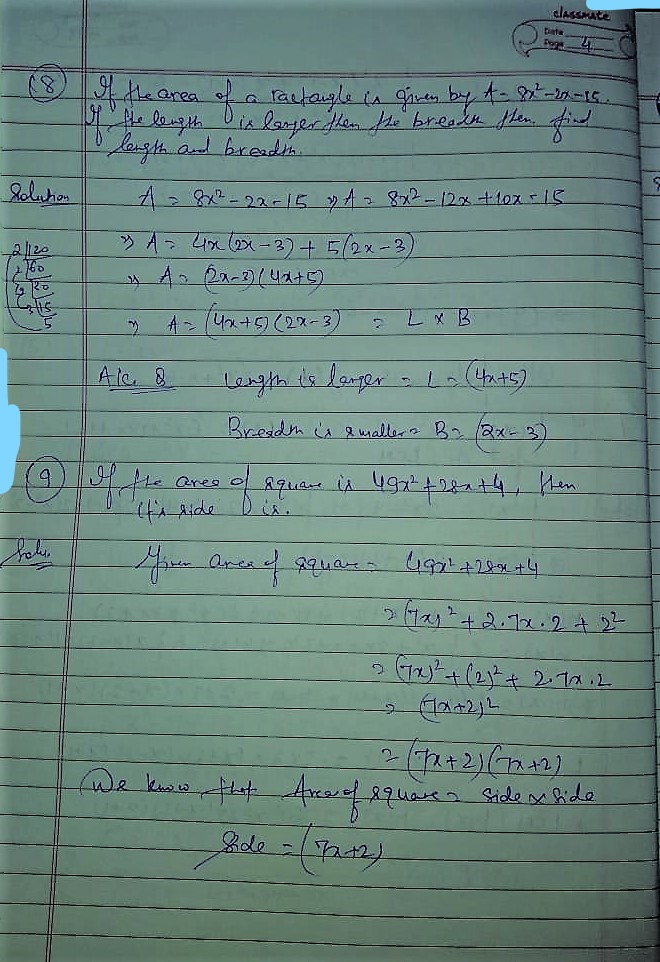 classmate
Date
Page 4
(8) If the area of a ractangle is given by A = 8x² - 2x - 15.
If the length is larger then the breadth then find
length and breadth.
Solution A = 8x² - 2x - 15 ⇒ A = 8x² - 12x + 10x - 15
⇒ A = 4x(2x - 3) + 5(2x - 3)
2 | 120
2 | 60
2 | 30
3 | 15
5
⇒ A = (2x - 3)(4x + 5)
⇒ A = (4x + 5)(2x - 3) = L × B
A/c. Q Length is larger = L = (4x + 5)
Breadth is smaller = B = (2x - 3)
(9) If the area of square is 49x² + 28x + 4, then
it's side is.
Solu. Given area of square = 49x² + 28x + 4
= (7x)² + 2.7x.2 + 2²
= (7x)² + (2)² + 2.7x.2
= (7x+2)²
= (7x+2)(7x+2)
We know that Area of square = side × side
Side = (7x+2)